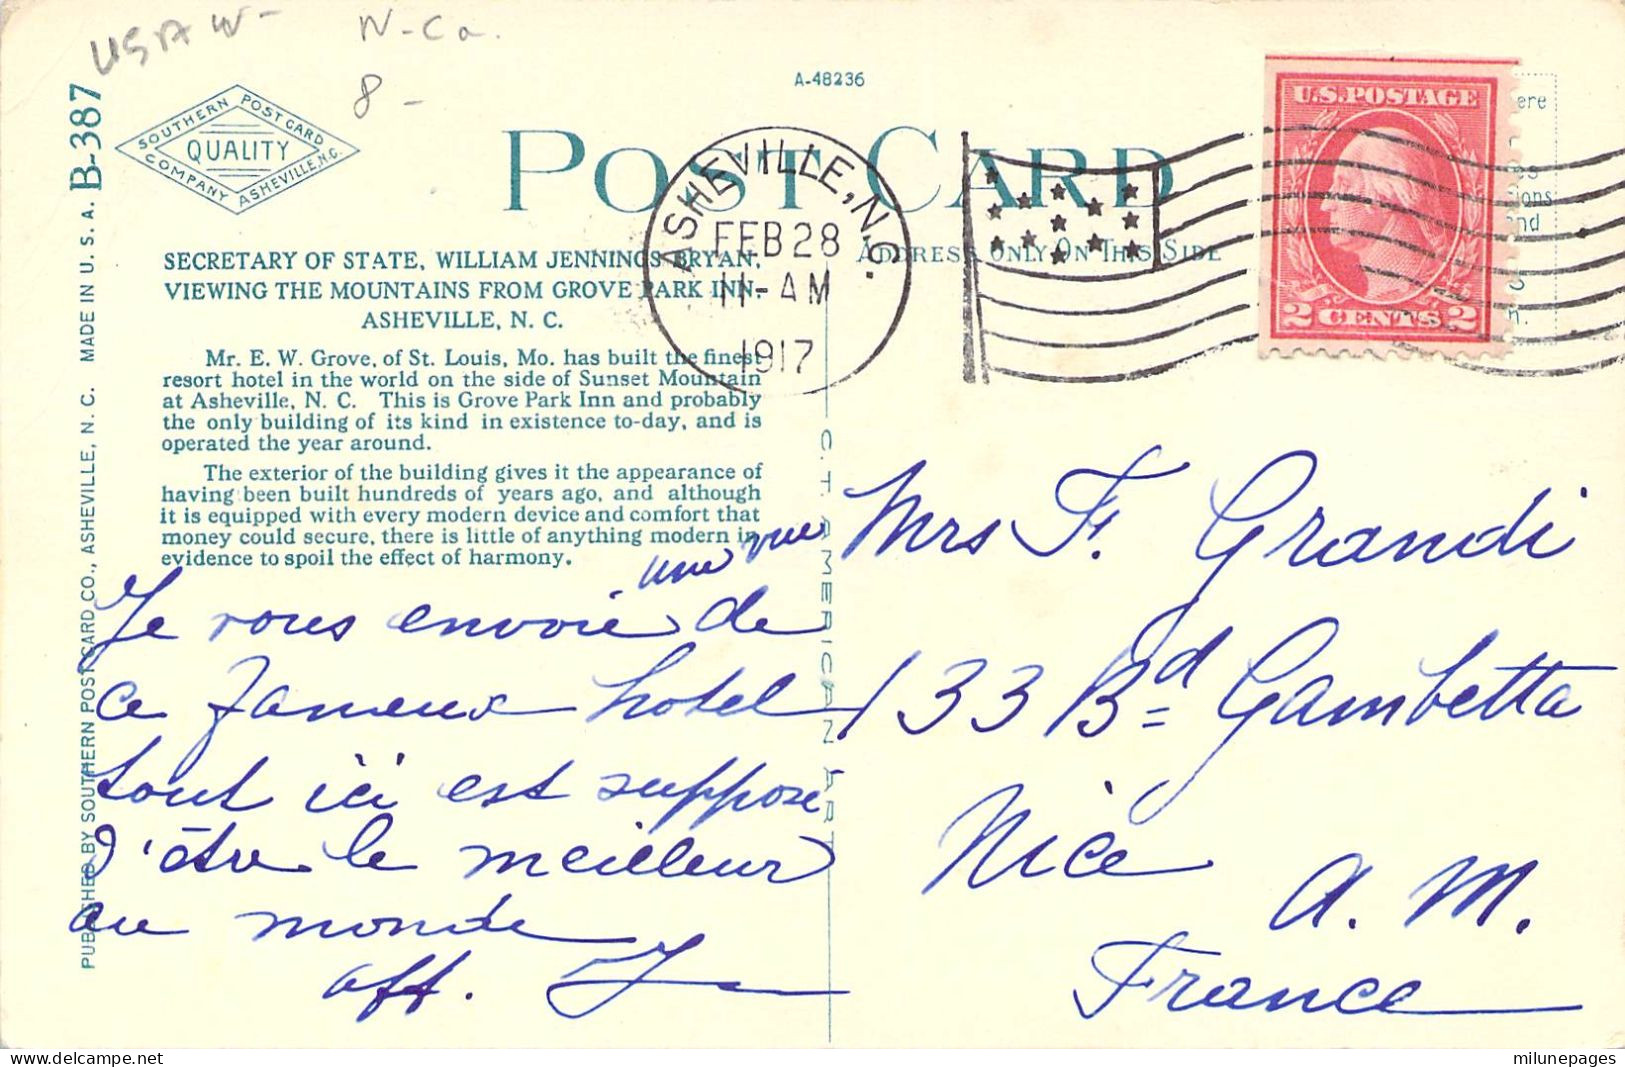 USA W-
N-Ca.
8-
A-48236
B-387
SOUTHERN POST CARD
QUALITY
COMPANY ASHEVILLE, N.C.
POST CARD
ADDRESS ONLY ON THIS SIDE
ASHEVILLE, N.C.
FEB 28
11-AM
1917
U.S. POSTAGE
2 CENTS 2
SECRETARY OF STATE, WILLIAM JENNINGS BRYAN,
VIEWING THE MOUNTAINS FROM GROVE PARK INN,
ASHEVILLE, N. C.
Mr. E. W. Grove, of St. Louis, Mo. has built the finest
resort hotel in the world on the side of Sunset Mountain
at Asheville, N. C. This is Grove Park Inn and probably
the only building of its kind in existence to-day, and is
operated the year around.
The exterior of the building gives it the appearance of
having been built hundreds of years ago, and although
it is equipped with every modern device and comfort that
money could secure, there is little of anything modern in
evidence to spoil the effect of harmony.
PUBLISHED BY SOUTHERN POST CARD CO., ASHEVILLE, N. C. MADE IN U. S. A.
C. T. AMERICAN ART
une vue
Je vous envoie de
ce fameux hotel
tout ici est suppose
d'être le meilleur
au monde
aff. J
Mrs F. Grandi
133 Bd Gambetta
Nice
A. M.
France
ere
ions
nd
delcampe.net
milunepages